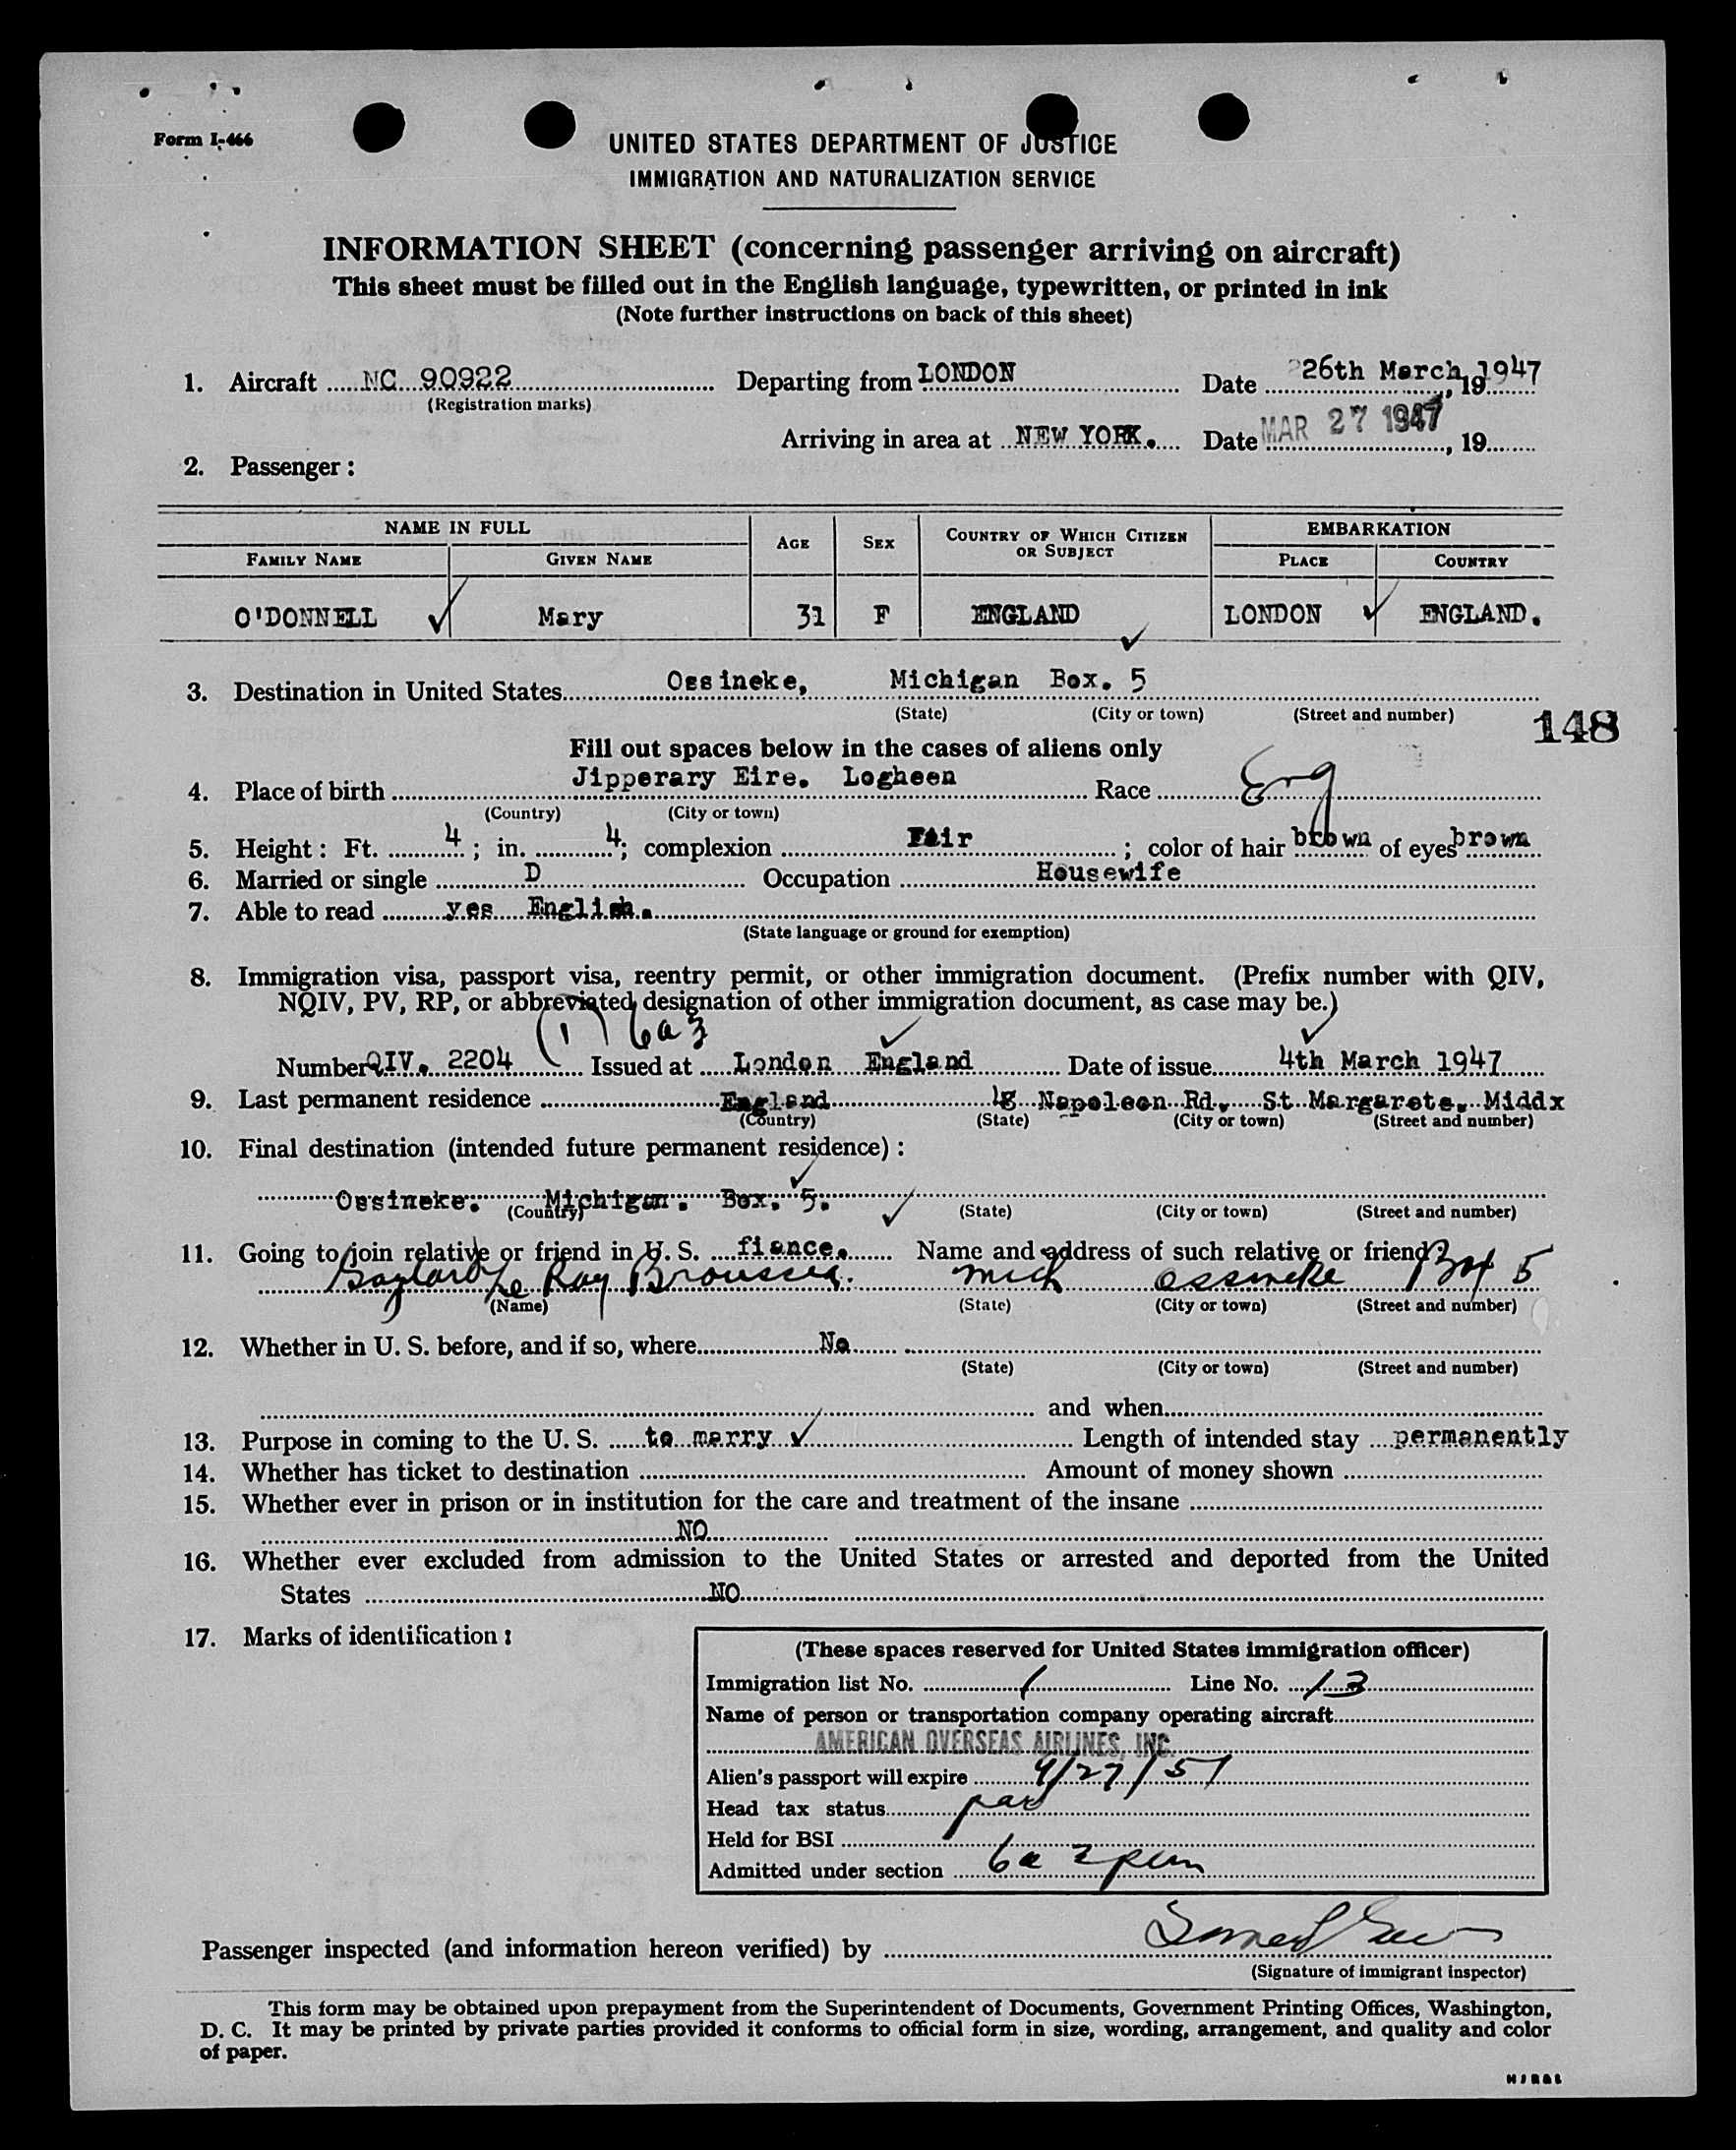 Form I-466
UNITED STATES DEPARTMENT OF JUSTICE
IMMIGRATION AND NATURALIZATION SERVICE
INFORMATION SHEET (concerning passenger arriving on aircraft)
This sheet must be filled out in the English language, typewritten, or printed in ink
(Note further instructions on back of this sheet)
1. Aircraft NC 90922 Departing from LONDON Date 26th March, 1947 19
(Registration marks)
Arriving in area at NEW YORK. Date MAR 27 1947, 19
2. Passenger:
NAME IN FULL AGE SEX COUNTRY OF WHICH CITIZEN OR SUBJECT EMBARKATION
FAMILY NAME GIVEN NAME PLACE COUNTRY
O'DONNELL ✓ Mary 31 F ENGLAND ✓ LONDON ✓ ENGLAND.
3. Destination in United States Ossineke, Michigan Box. 5
(State) (City or town) (Street and number)
148
Fill out spaces below in the cases of aliens only
4. Place of birth Jipperary Eire. Logheen Race Eng
(Country) (City or town)
5. Height: Ft. 4; in. 4; complexion Fair; color of hair brown of eyes brown
6. Married or single D Occupation Housewife
7. Able to read yes English.
(State language or ground for exemption)
8. Immigration visa, passport visa, reentry permit, or other immigration document. (Prefix number with QIV,
NQIV, PV, RP, or abbreviated designation of other immigration document, as case may be.)
(1) 6a3
Number QIV. 2204 Issued at London England Date of issue 4th March 1947
9. Last permanent residence England Napoleon Rd, St Margarets, Middx
(Country) (State) (City or town) (Street and number)
10. Final destination (intended future permanent residence):
Ossineke. Michigan. Box. 5.
(Country) (State) (City or town) (Street and number)
11. Going to join relative or friend in U. S. fiance. Name and address of such relative or friend?
Gaylard Le Ray Mich ossineke Box 5
(Name) (State) (City or town) (Street and number)
12. Whether in U. S. before, and if so, where No
(State) (City or town) (Street and number)
and when
13. Purpose in coming to the U. S. to marry ✓ Length of intended stay permanently
14. Whether has ticket to destination Amount of money shown
15. Whether ever in prison or in institution for the care and treatment of the insane
NO
16. Whether ever excluded from admission to the United States or arrested and deported from the United
States NO
17. Marks of identification:
(These spaces reserved for United States immigration officer)
Immigration list No. 1 Line No. 13
Name of person or transportation company operating aircraft
AMERICAN OVERSEAS AIRLINES, INC.
Alien's passport will expire
Head tax status paid
Held for BSI
Admitted under section 6a 3
Passenger inspected (and information hereon verified) by
(Signature of immigrant inspector)
This form may be obtained upon prepayment from the Superintendent of Documents, Government Printing Offices, Washington,
D. C. It may be printed by private parties provided it conforms to official form in size, wording, arrangement, and quality and color
of paper.